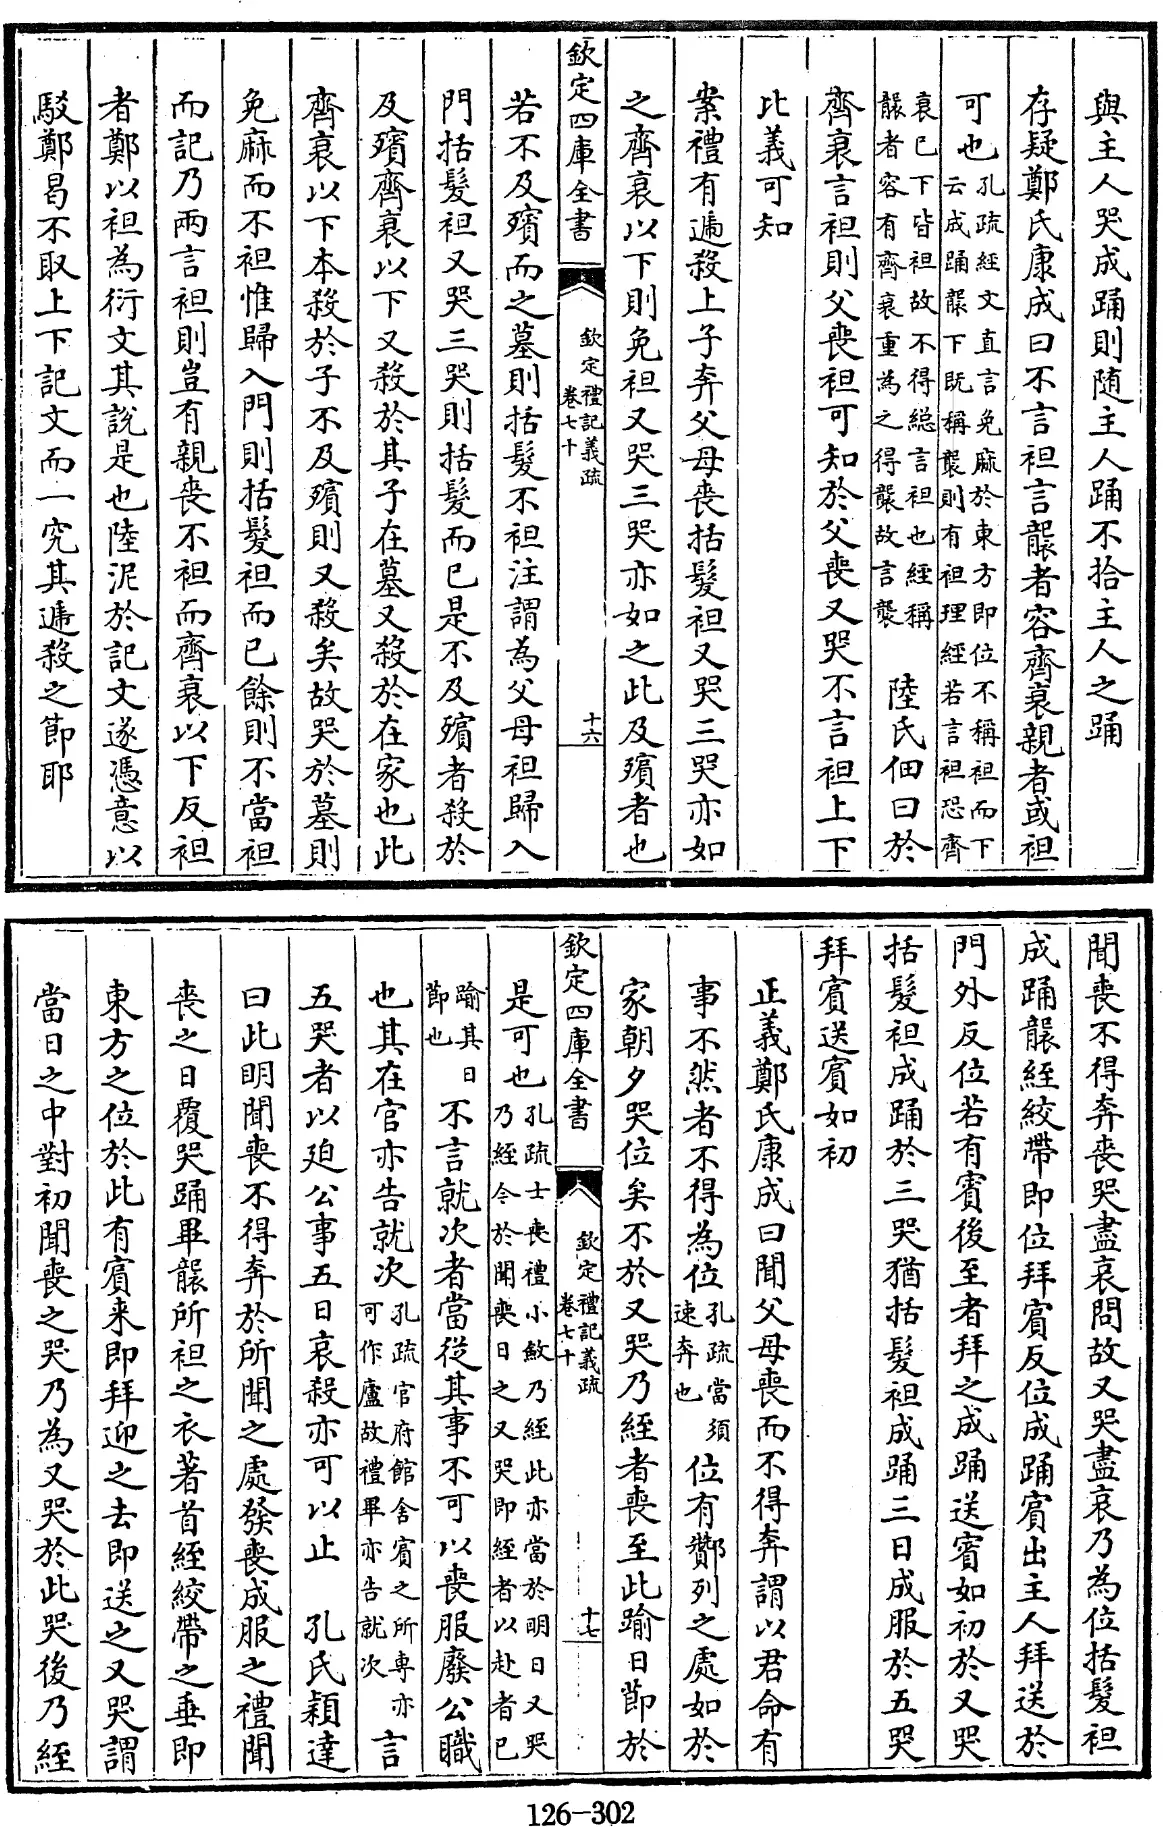 與主人哭成踊則随主人踊不拾主人之踊
存疑鄭氏康成曰不言袒言襲者容齊衰親者或袒
可也孔疏經文直言免麻於東方即位不稱袒而下云成踊襲下既稱襲則有袒理經若言袒恐齊
衰已下皆袒故不得緫言袒也經稱襲者容有齊衰重為之得襲故言襲 陸氏佃曰於
齊衰言袒則父喪袒可知於父喪又哭不言袒上下
比義可知
案禮有遞殺上子奔父母喪括髮袒又哭三哭亦如
之齊衰以下則免袒又哭三哭亦如之此及殯者也
欽定四庫全書 欽定禮記義疏 卷七十 十六
若不及殯而之墓則括髮不袒注謂為父母袒歸入
門括髮袒又哭三哭則括髮而已是不及殯者殺於
及殯齊衰以下又殺於其子在墓又殺於在家也此
齊衰以下本殺於子不及殯則又殺矣故哭於墓則
免麻而不袒惟歸入門則括髮袒而已餘則不當袒
而記乃兩言袒則豈有親喪不袒而齊衰以下反袒
者鄭以袒為衍文其說是也陸泥於記文遂憑意以
駁鄭曷不取上下記文而一究其遞殺之節耶
聞喪不得奔喪哭盡哀問故又哭盡哀乃為位括髮袒
成踊襲絰絞帶即位拜賓反位成踊賓出主人拜送於
門外反位若有賓後至者拜之成踊送賓如初於又哭
括髮袒成踊於三哭猶括髮袒成踊三日成服於五哭
拜賓送賓如初
正義鄭氏康成曰聞父母喪而不得奔謂以君命有
事不然者不得為位孔疏當須速奔也 位有酇列之處如於
家朝夕哭位矣不於又哭乃絰者喪至此踰日節於
欽定四庫全書 欽定禮記義疏 卷七十 十七
是可也孔疏士喪禮小斂乃絰此亦當於明日又哭乃絰今於聞喪日之又哭即絰者以赴者已
踰其日節也 不言就次者當從其事不可以喪服廢公職
也其在官亦告就次孔疏官府館舍賓之所專亦可作廬故禮畢亦告就次 言
五哭者以迫公事五日哀殺亦可以止 孔氏穎達
曰此明聞喪不得奔於所聞之處發喪成服之禮聞
喪之日覆哭踊畢襲所袒之衣著首絰絞帶之垂即
東方之位於此有賓来即拜迎之去即送之又哭謂
當日之中對初聞喪之哭乃為又哭於此哭後乃絰
126-302